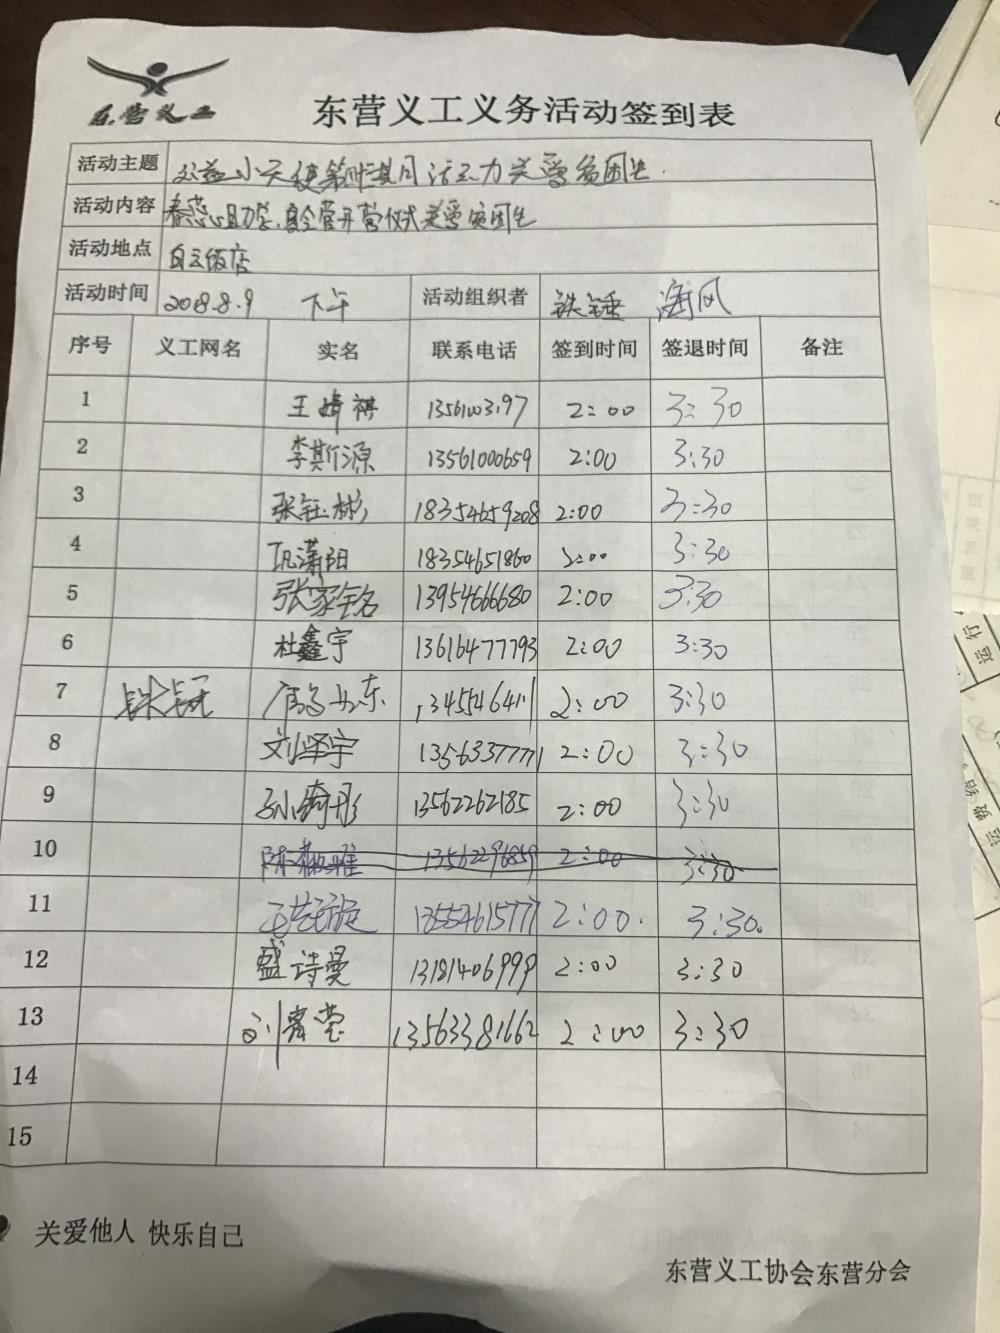 东营义工
东营义工义务活动签到表
活动主题 公益小天使第 期 关爱贫困生.
活动内容 春蕊 助学, 营开营仪式关爱贫困生
活动地点 白云饭店
活动时间 2018.8.9 下午 活动组织者 铁锤 海风
序号 义工网名 实名 联系电话 签到时间 签退时间 备注
1 王婧祺 2:00 3:30
2 李斯源 13561000659 2:00 3:30
3 张钰彬 18354659208 2:00 3:30
4 巩潇阳 18354651860 2:00 3:30
5 张家铭 13954666680 2:00 3:30
6 杜鑫宇 13616477793 2:00 3:30
7 2:00 3:30
8 刘坚宇 13563377771 2:00 3:30
9 孙绮彤 13562262185 2:00 3:30
10 13562296859 2:00 3:30
11 13554615777 2:00. 3:30.
12 盛诗曼 13181406999 2:00 3:30
13 刘 莹 13563381662 2:00 3:30
14
15
关爱他人 快乐自己
东营义工协会东营分会
运行